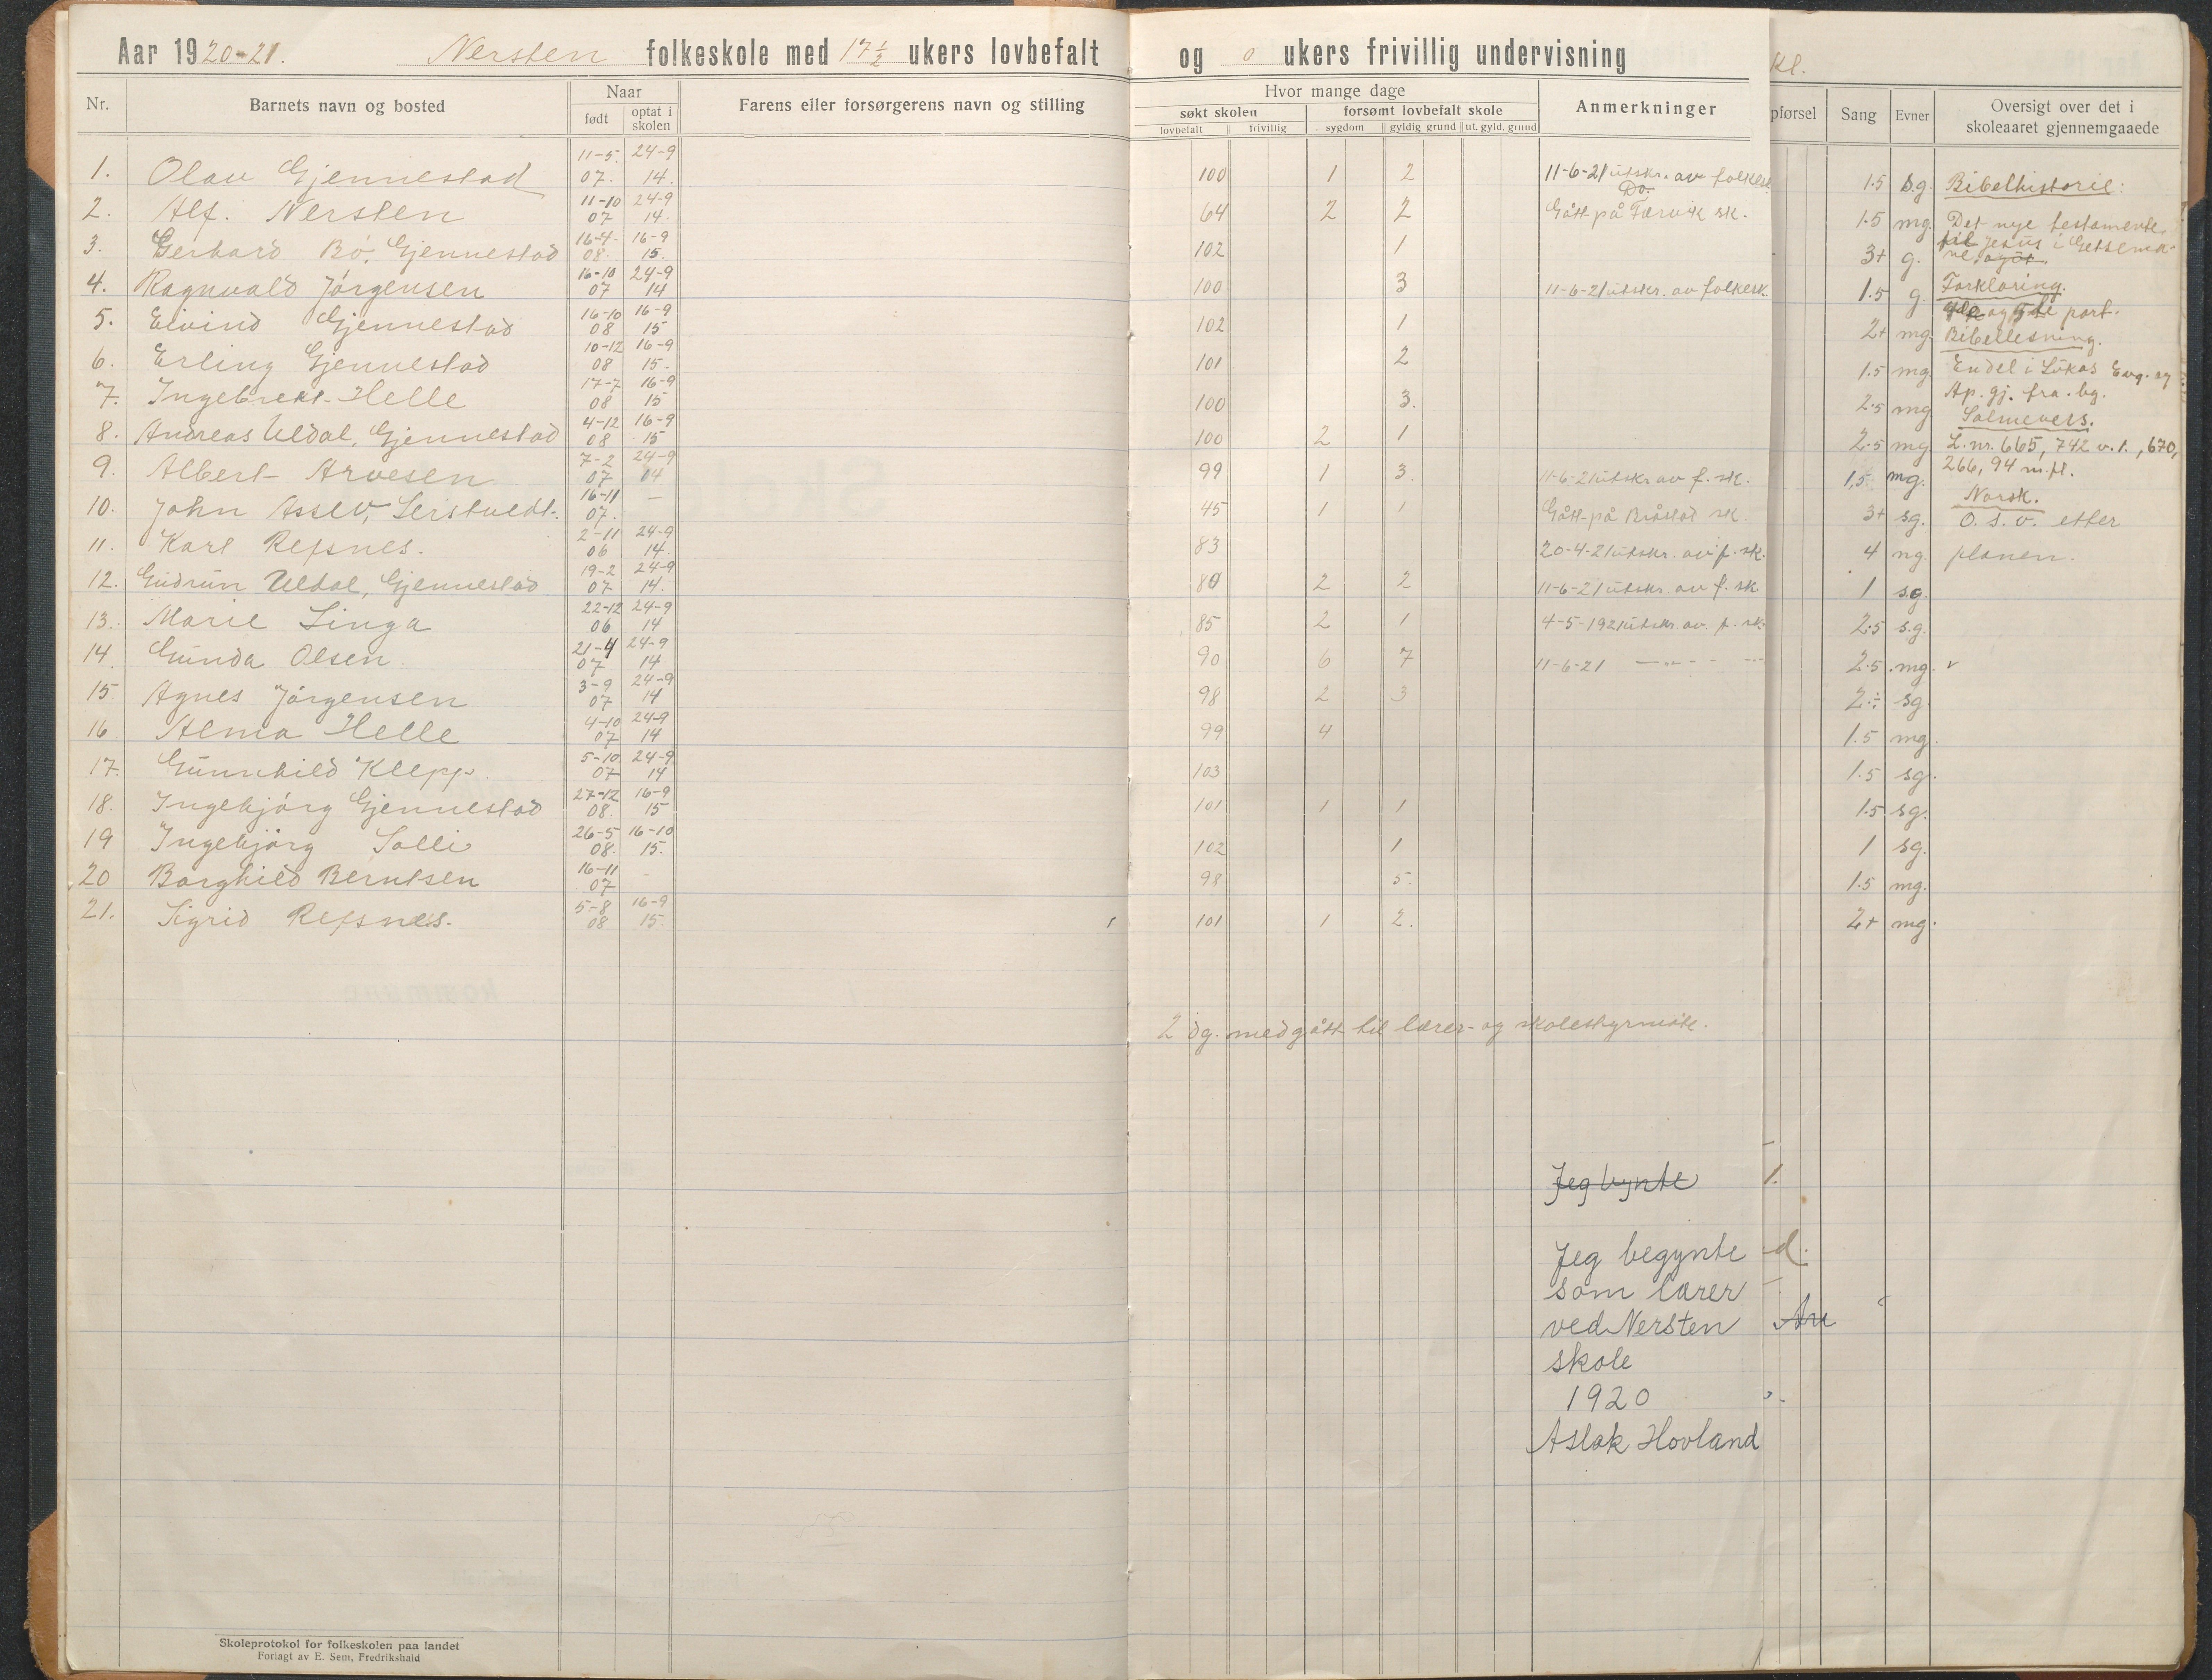 Aar 1920-21. Nersten folkeskole med 17 1/2 ukers lovbefalt og 0 ukers frivillig undervisning kl.
Nr. Barnets navn og bosted Naar født optat i skolen Farens eller forsørgerens navn og stilling Hvor mange dage søkt skolen lovbefalt frivillig forsømt lovbefalt skole sygdom gyldig grund ut. gyld. grund Anmerkninger pførsel Sang Evner Oversigt over det i skoleaaret gjennemgaaede
1. Olav Gjennestad 11-5. 07. 24-9 14. 100 1 2 11-6-21 utskr. av folkesk. 1.5 s.g. Bibelhistorie:
2. Alf. Nersten 11-10 07 24-9 14. 64 2 2 Do. Gått på Færvik sk. 1.5 mg. Det nye testamente
3. Gerhard Bö, Gjennestad 16-4. 08. 16-9 15. 102 1 3+ g. til Jesus i Getsemane
4. Ragnvald Jörgensen 16-10 07 24-9 14 100 3 11-6-21 utskr. av folkesk. 1.5 g. Forklaring.
5. Eivind Gjennestad 16-10 08 16-9 15 102 1 2+ mg og 5te part.
Bibellesning.
6. Erling Gjennestad 10-12 08 16-9 15. 101 2 1.5 mg Endel i Lukas Evg. og
7. Ingebrekt Helle 17-7 08 16-9 15 100 3. 2.5 mg Ap. gj. fra. bg.
Salmevers.
8. Andreas Uldal, Gjennestad 4-12 08 16-9 15 100 2 1 2.5 mg L. nr. 665, 742 v. 1., 670,
9. Albert Arvesen 7-2 07 24-9 14 99 1 3. 11-6-21 utskr av f. sk. 1,5 mg. 266, 94 m.fl.
Norsk.
10. John Assev, Leistvedt. 16-11 07. — 45 1 1 Gått på Bråstad sk. 3+ sg. O. s. v. etter
11. Karl Refsnes. 2-11 06 24-9 14. 83 20-4-21 utskr. av f. sk. 4 ng planen.
12. Gudrun Uldal, Gjennestad 19-2 07 24-9 14. 80 2 2 11-6-21 utskr. av f. sk 1 sg.
13. Marie Linga 22-12 06 24-9 14 85 2 1 4-5-1921 utskr. av. f. sk. 2.5 s.g.
14. Gunda Olsen. 21-4 07 24-9 14 90 6 7 11-6-21 — „ — 2.5 mg. v
15. Agnes Jörgensen 3-9 07 24-9 14 98 2 3 2÷ sg.
16 Alma Helle 4-10 07 24-9 14 99 4 1.5 mg.
17. Gunnhild Klepp. 5-10 07 24-9 14 103 1.5 sg.
18. Ingebjörg Gjennestad 27-12 08. 16-9 15 101 1 1 1.5 sg.
19 Ingebjörg Solli 26-5 08. 16-10 15. 102 1 1 sg.
20 Borghild Berntsen 16-11 07 - 98 5. 1.5 mg.
21. Sigrid Refsnes. 5-8 08 16-9 15. 101 1 2. 2+ mg.
2 dg. medgått til lærer- og skolestyrmöte.
Jeg bynte 1.
Jeg begynte d.
som lærer
ved Nersten An
skole
1920
Aslak Hovland
Skoleprotokol for folkeskolen paa landet
Forlagt av E. Sem, Fredrikshald